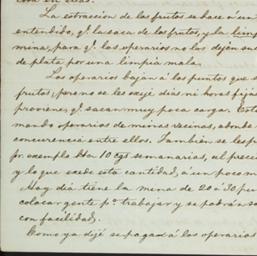 La estraccion de los frutos se hace á un
entendido, q.e la saca de los frutos, y la limp
mina, para q.e los operarios no los dejen su
de plata por una limpia mala.
Los operarios bajan á los puntos que s
frutos; pero no se les exije dias ni horas fijas
proviene q.e sacan muy poca carga. Esto
mando operarios de minas vecinas, abonde
concurrencia entre ellos. Tambien se les p
pr. exemplo 8 á 10 Cgs semanarias, el preci
y lo que exede esta cantidad, á un poco m
Hoy dia tiene la mina de 20 á 30 pe
colocar gente p.a trabajar y se podrán sa
con facilidad.
Como ya dijé se pagad á los operarios